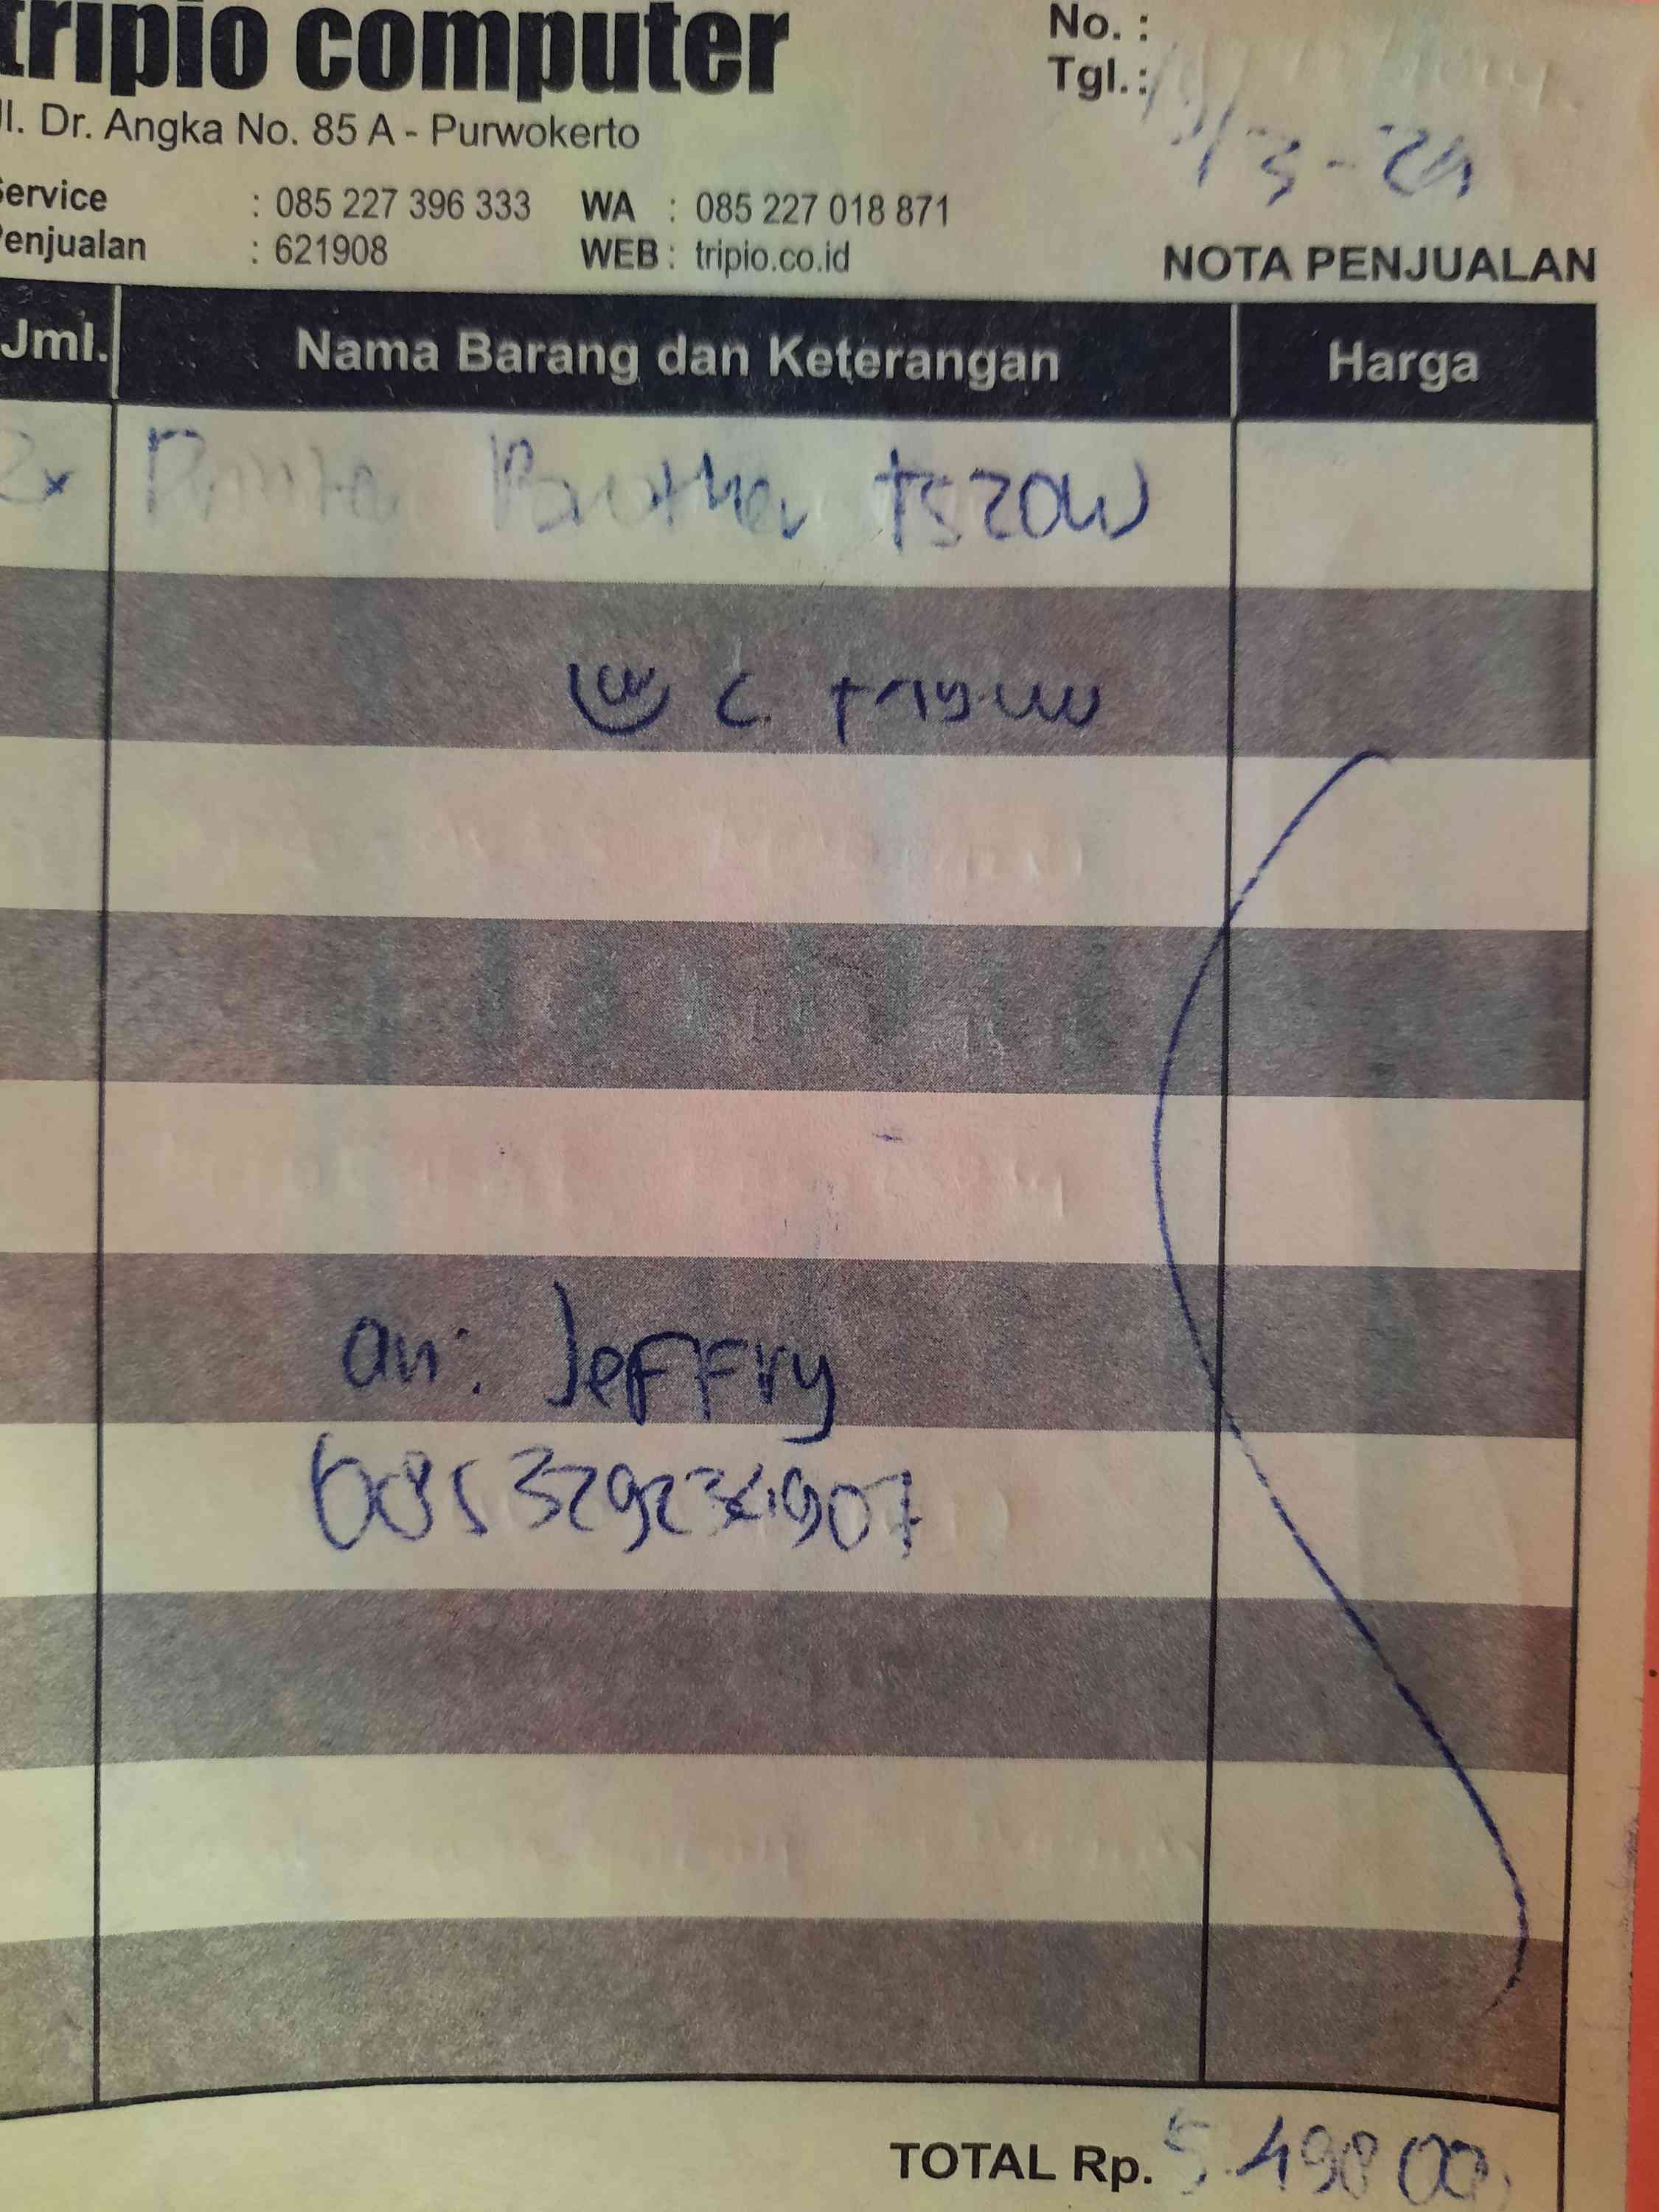 tripio computer
Jl. Dr. Angka No. 85 A - Purwokerto
Service : 085 227 396 333 WA : 085 227 018 871
Penjualan : 621908 WEB : tripio.co.id
No. :
Tgl. : /3-24
NOTA PENJUALAN
Jml. Nama Barang dan Keterangan Harga
2x Printer Brother t520W
an: Jeffry
TOTAL Rp. 5.498000